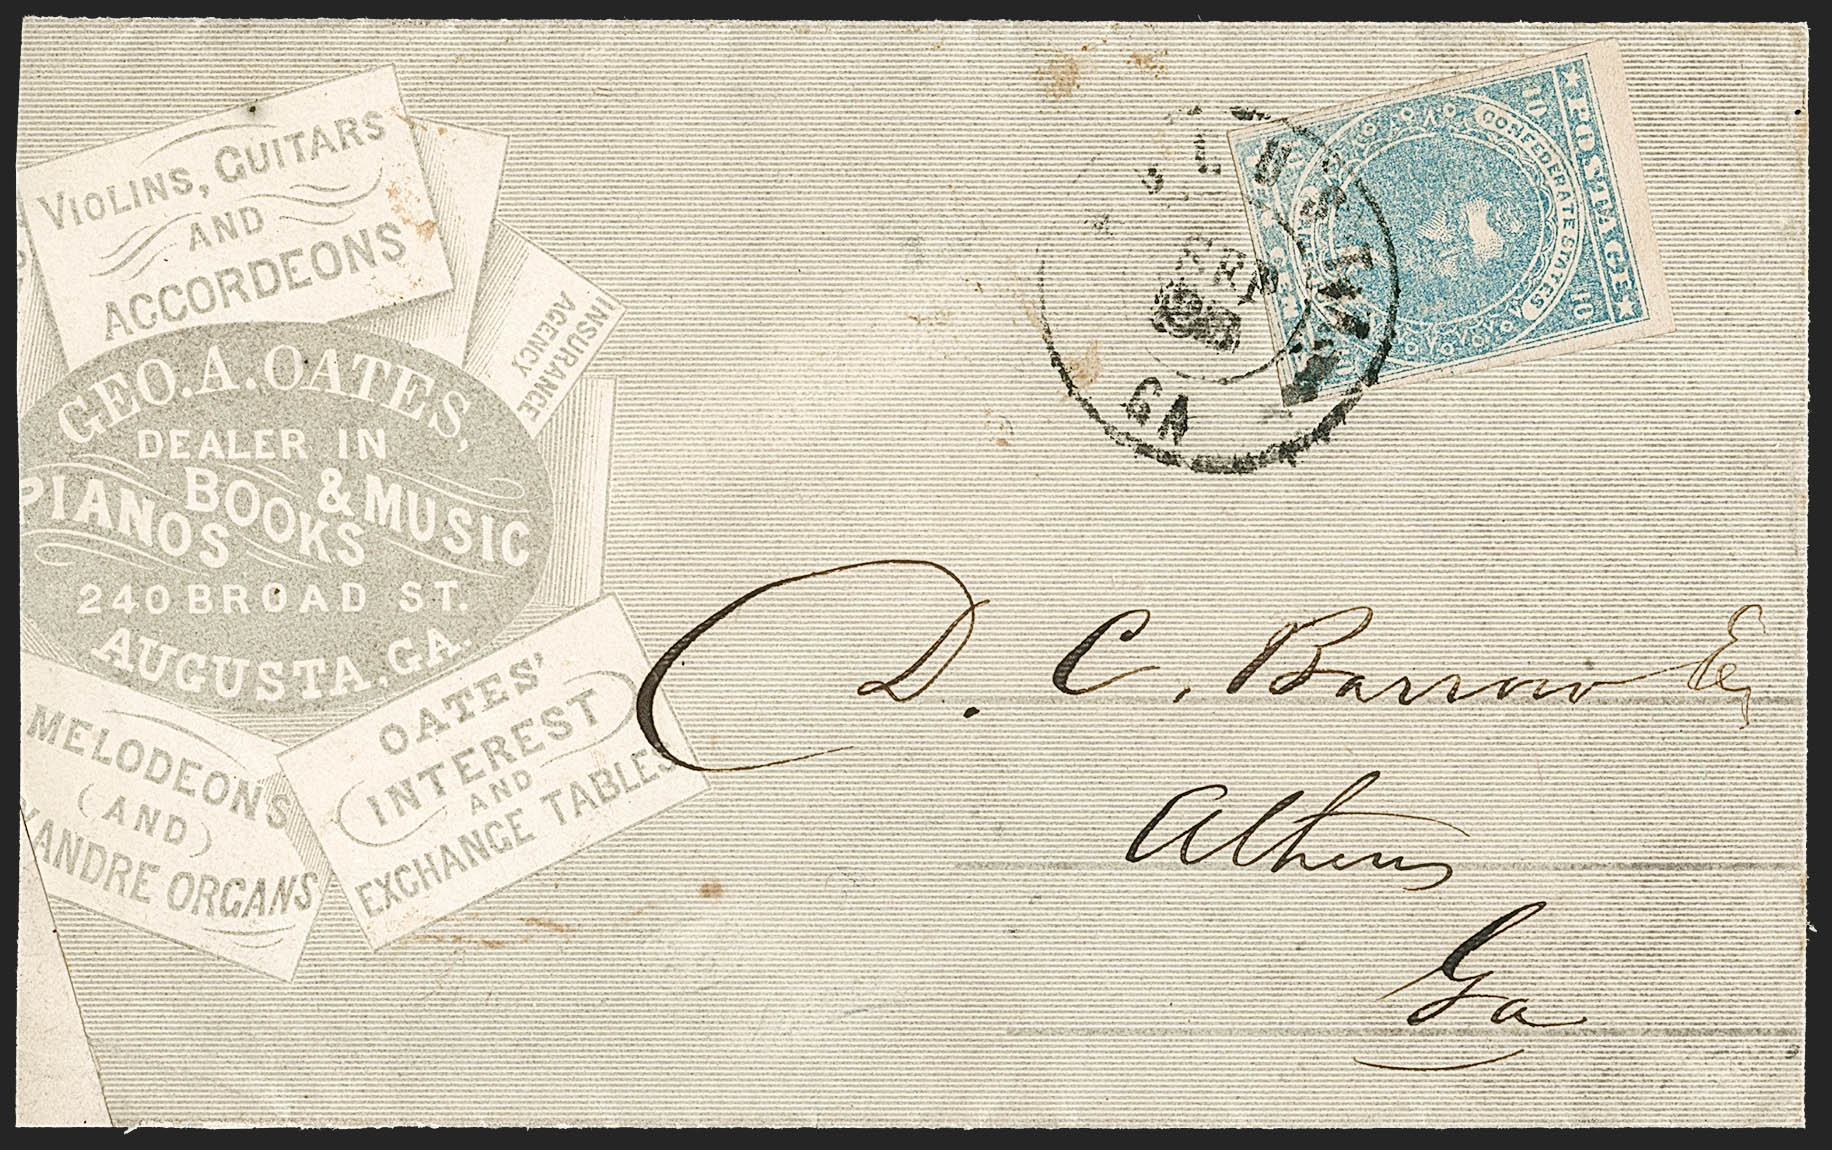 VIOLINS, GUITARS
AND
ACCORDEONS
INSURANCE
AGENCY
GEO. A. OATES,
DEALER IN
BOOKS
PIANOS & MUSIC
240 BROAD ST.
AUGUSTA, GA.
MELODEONS
(AND)
XANDRE ORGANS
OATES'
INTEREST
AND
EXCHANGE TABLES
GA
POSTAGE
CONFEDERATE STATES
10
10
D. C. Barrow Esq
Athens
Ga